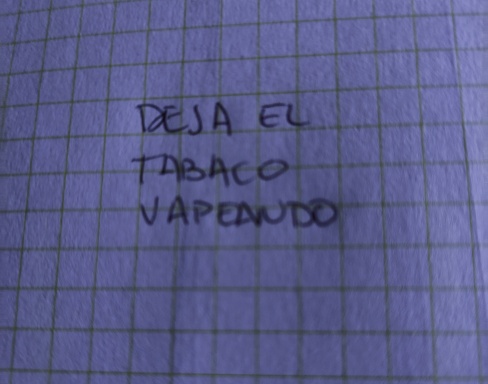 DEJA EL
TABACO
VAPEANDO